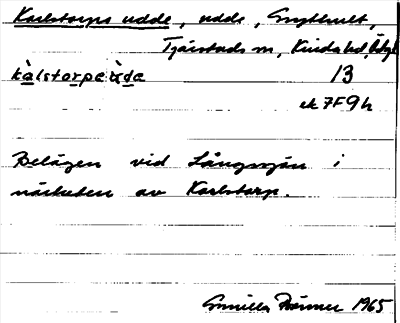 Karlstorps udde, udde, Grythult,
Tjärstads sn, Kinda hd, Ög
kàlstorpsùde 13
ek 7F9h
Belägen vid Långsjön i
närheten av Karlstorp.
Gunilla 1965